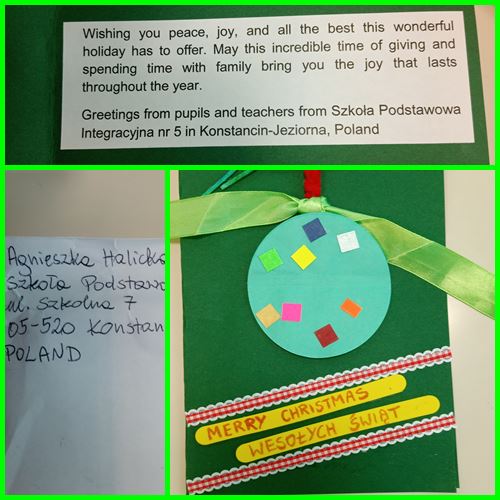 Wishing you peace, joy, and all the best this wonderful
holiday has to offer. May this incredible time of giving and
spending time with family bring you the joy that lasts
throughout the year.
Greetings from pupils and teachers from Szkoła Podstawowa
Integracyjna nr 5 in Konstancin-Jeziorna, Poland
Agnieszka Halicka
Szkoła Podstawo
ul. Szkolna 7
05-520 Konstan
POLAND
MERRY CHRISTMAS
WESOŁYCH ŚWIĄT